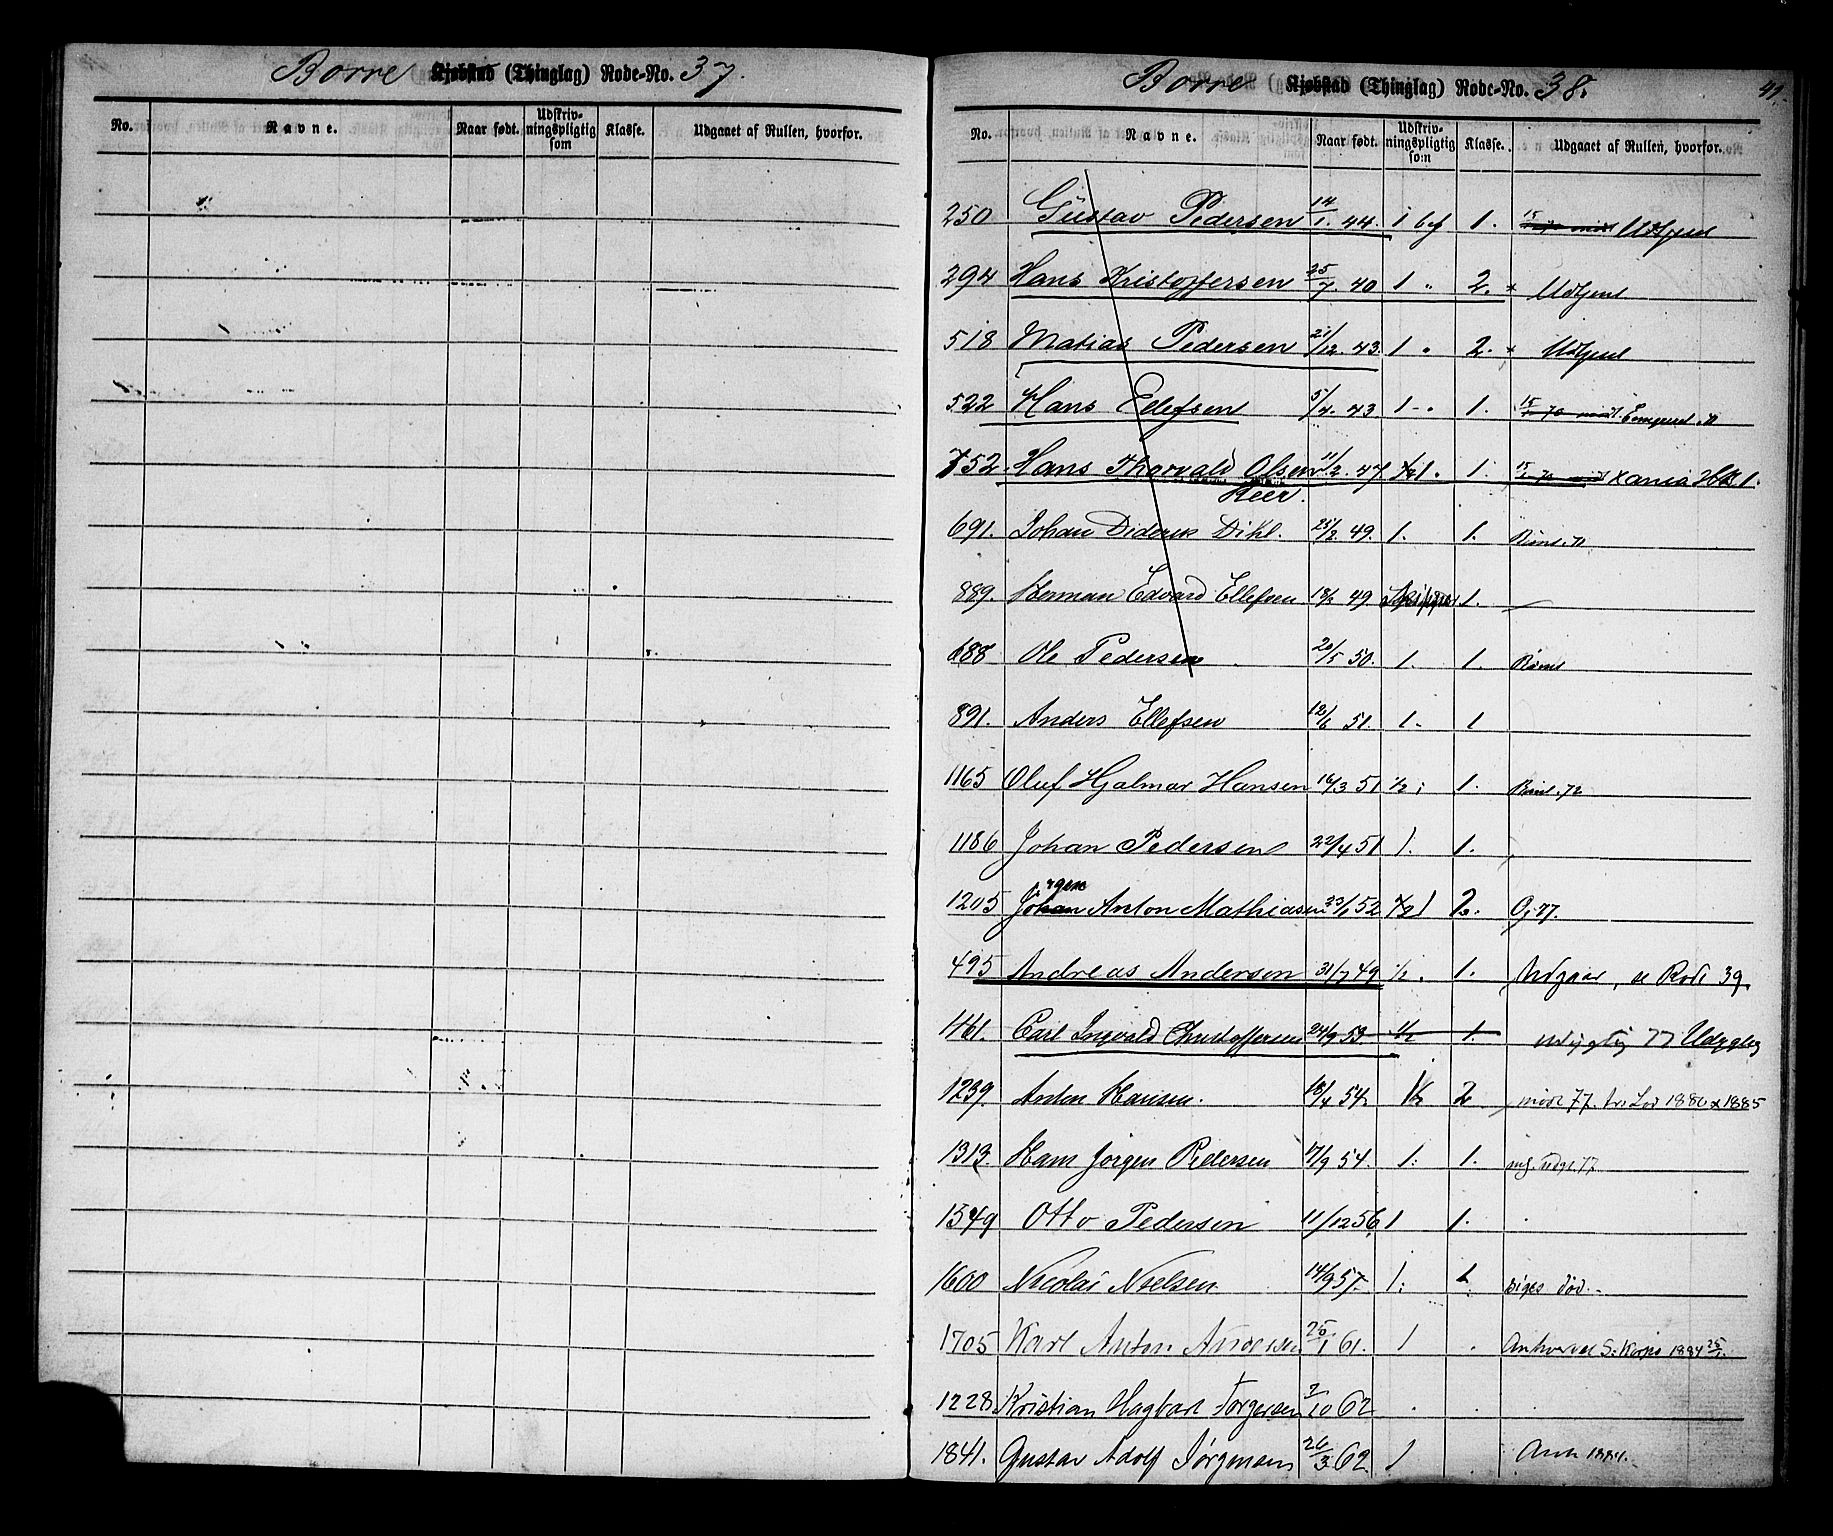 Borre Kjøbstad (Thinglag) Rode-No. 37.
No. Navne. Naar født. Udskriv-ningspligtig som Klasse. Udgaaet af Rullen, hvorfor.
Borre Kjøbstad (Thinglag) Rode-No. 38. 41.
No. Navne. Naar født. Udskriv-ningspligtig som Klasse. Udgaaet af Rullen, hvorfor.
250 Gustav Pedersen 14/1. 44. 1 bef 1. Udtjent
294 Hans Kristoffersen 25/7. 40 1 " 2. × Udtjent
518 Matias Pedersen 21/12. 43. 1 " 2. × Udtjent
522 Hans Edlefsen 5/4. 43 1 - " 1.
752. Hans Thorvald Olsen 11/2. 47 1. 1. Xania
Heer.
691. Johan Diderik Dihl. 25/2. 49. 1. 1.
889. Herman Edvard Ellefsen 18/2 49 Skipper 1.
688 Ole Pedersen 20/5 50. 1. 1.
891. Anders Ellefsen 12/6 51. 1. 1
1165 Oluf Hjalmar Hansen 16/3 51 1/2 1.
1186 Johan Pedersen 22/4 51 1. 1.
1205 Jørgen Anton Mathiasen 23/1 52 1/2 1 2.
495 Andreas Anderson 31/7 49 1/2 . 1. Udgaar, se Rode 39.
461. Carl Ingvald Christoffersen 24/9 53 1/2 1. udygtig 77 Udygtig
1239. Anton Hansen. 18/4 54. 1/2 2 mødt 77. 1880 × 1885
1313. Hans Jörgen Pedersen 17/9 54. 1. 1.
1549 Otto Pedersen 11/12 56, 1 1.
1600 Nicolai Nielsen. 14/9 57. 1. 1. siges død.
1705 Karl Anton Andersen 25/1 61. 1 . S. Korps 1884
1228 Kristian Hagbart Torgersen 2/10 62 . .
1841. Gustav Adolf Jørgensen 26/3 62. 1 1884.